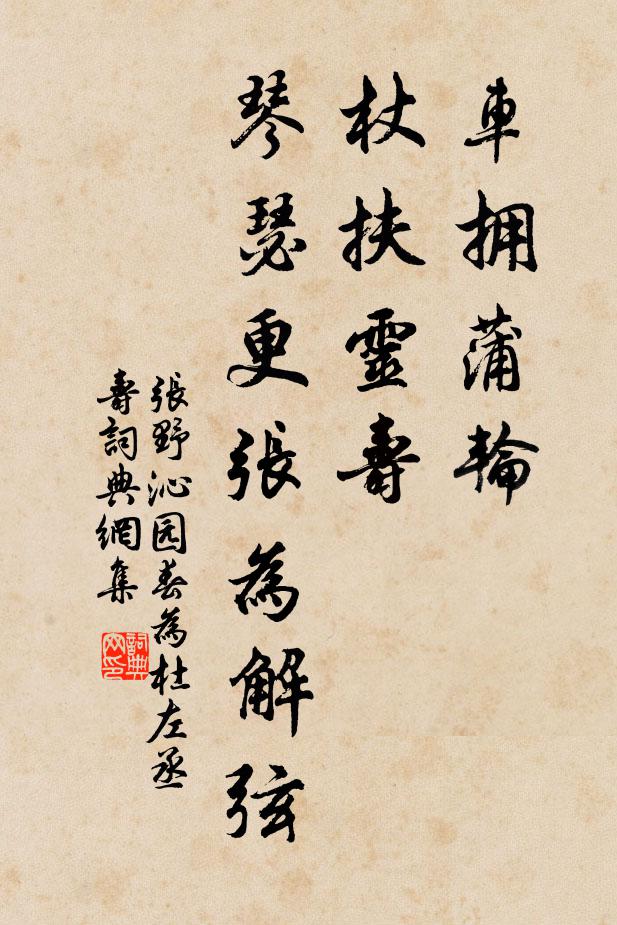 車拥蒲輪
杖扶靈壽
琴瑟更張為解弦
張野沁园春為杜左丞
壽詞典網集
詞典网印